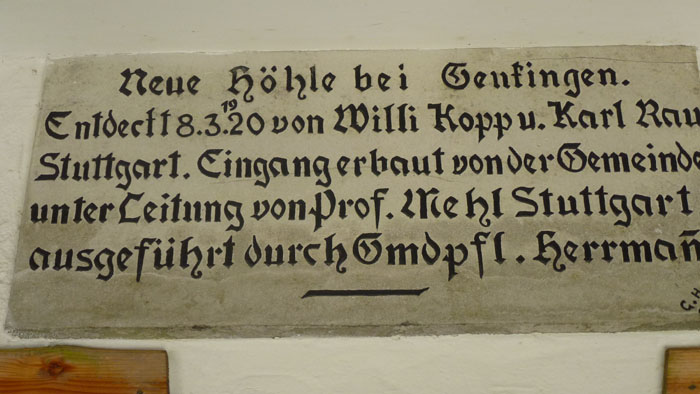 Neue Höhle bei Genkingen.
Entdeckt 8.3.1920 von Willi Kopp u. Karl Rau
Stuttgart. Eingang erbaut von der Gemeinde
unter Leitung von Prof. Mehl Stuttgart
ausgeführt durch Gmdpfl. Herrmañ
G.H